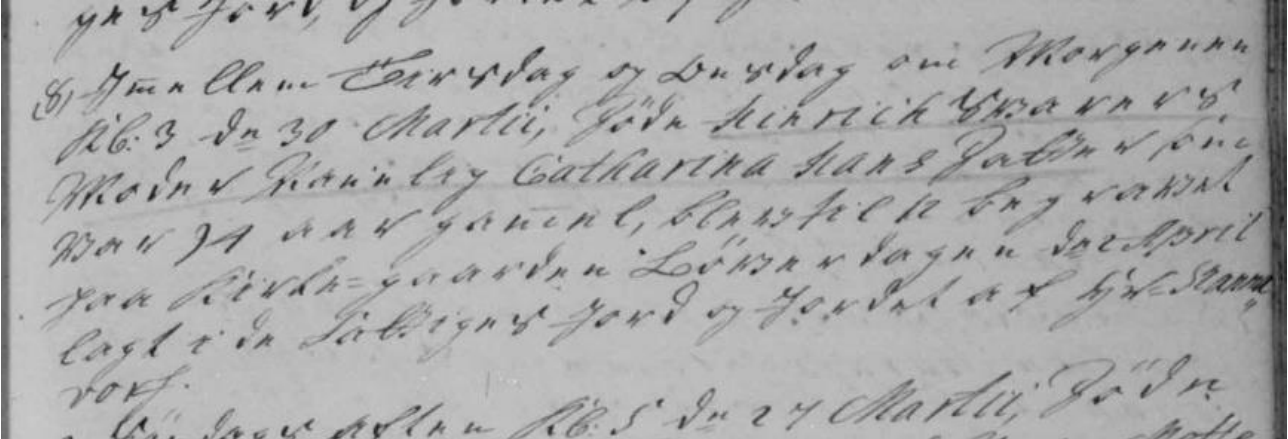 ges Jord, og
8) Imellem Tirsdag og Onsdag om Morgenen
Kl: 3 dn 30 Martii, døde Hinrich Svarers
Moder Navnlig Catharina Hans Datter som
var 74 aar gamel, blev stilt begravet
paa Kirke-gaarden Löverdagen dn 2 April
lagt i de fattiges Jord og Jordet af Hr
dorf.
Söndags aften Kl: 5 dn 27 Martii, döde